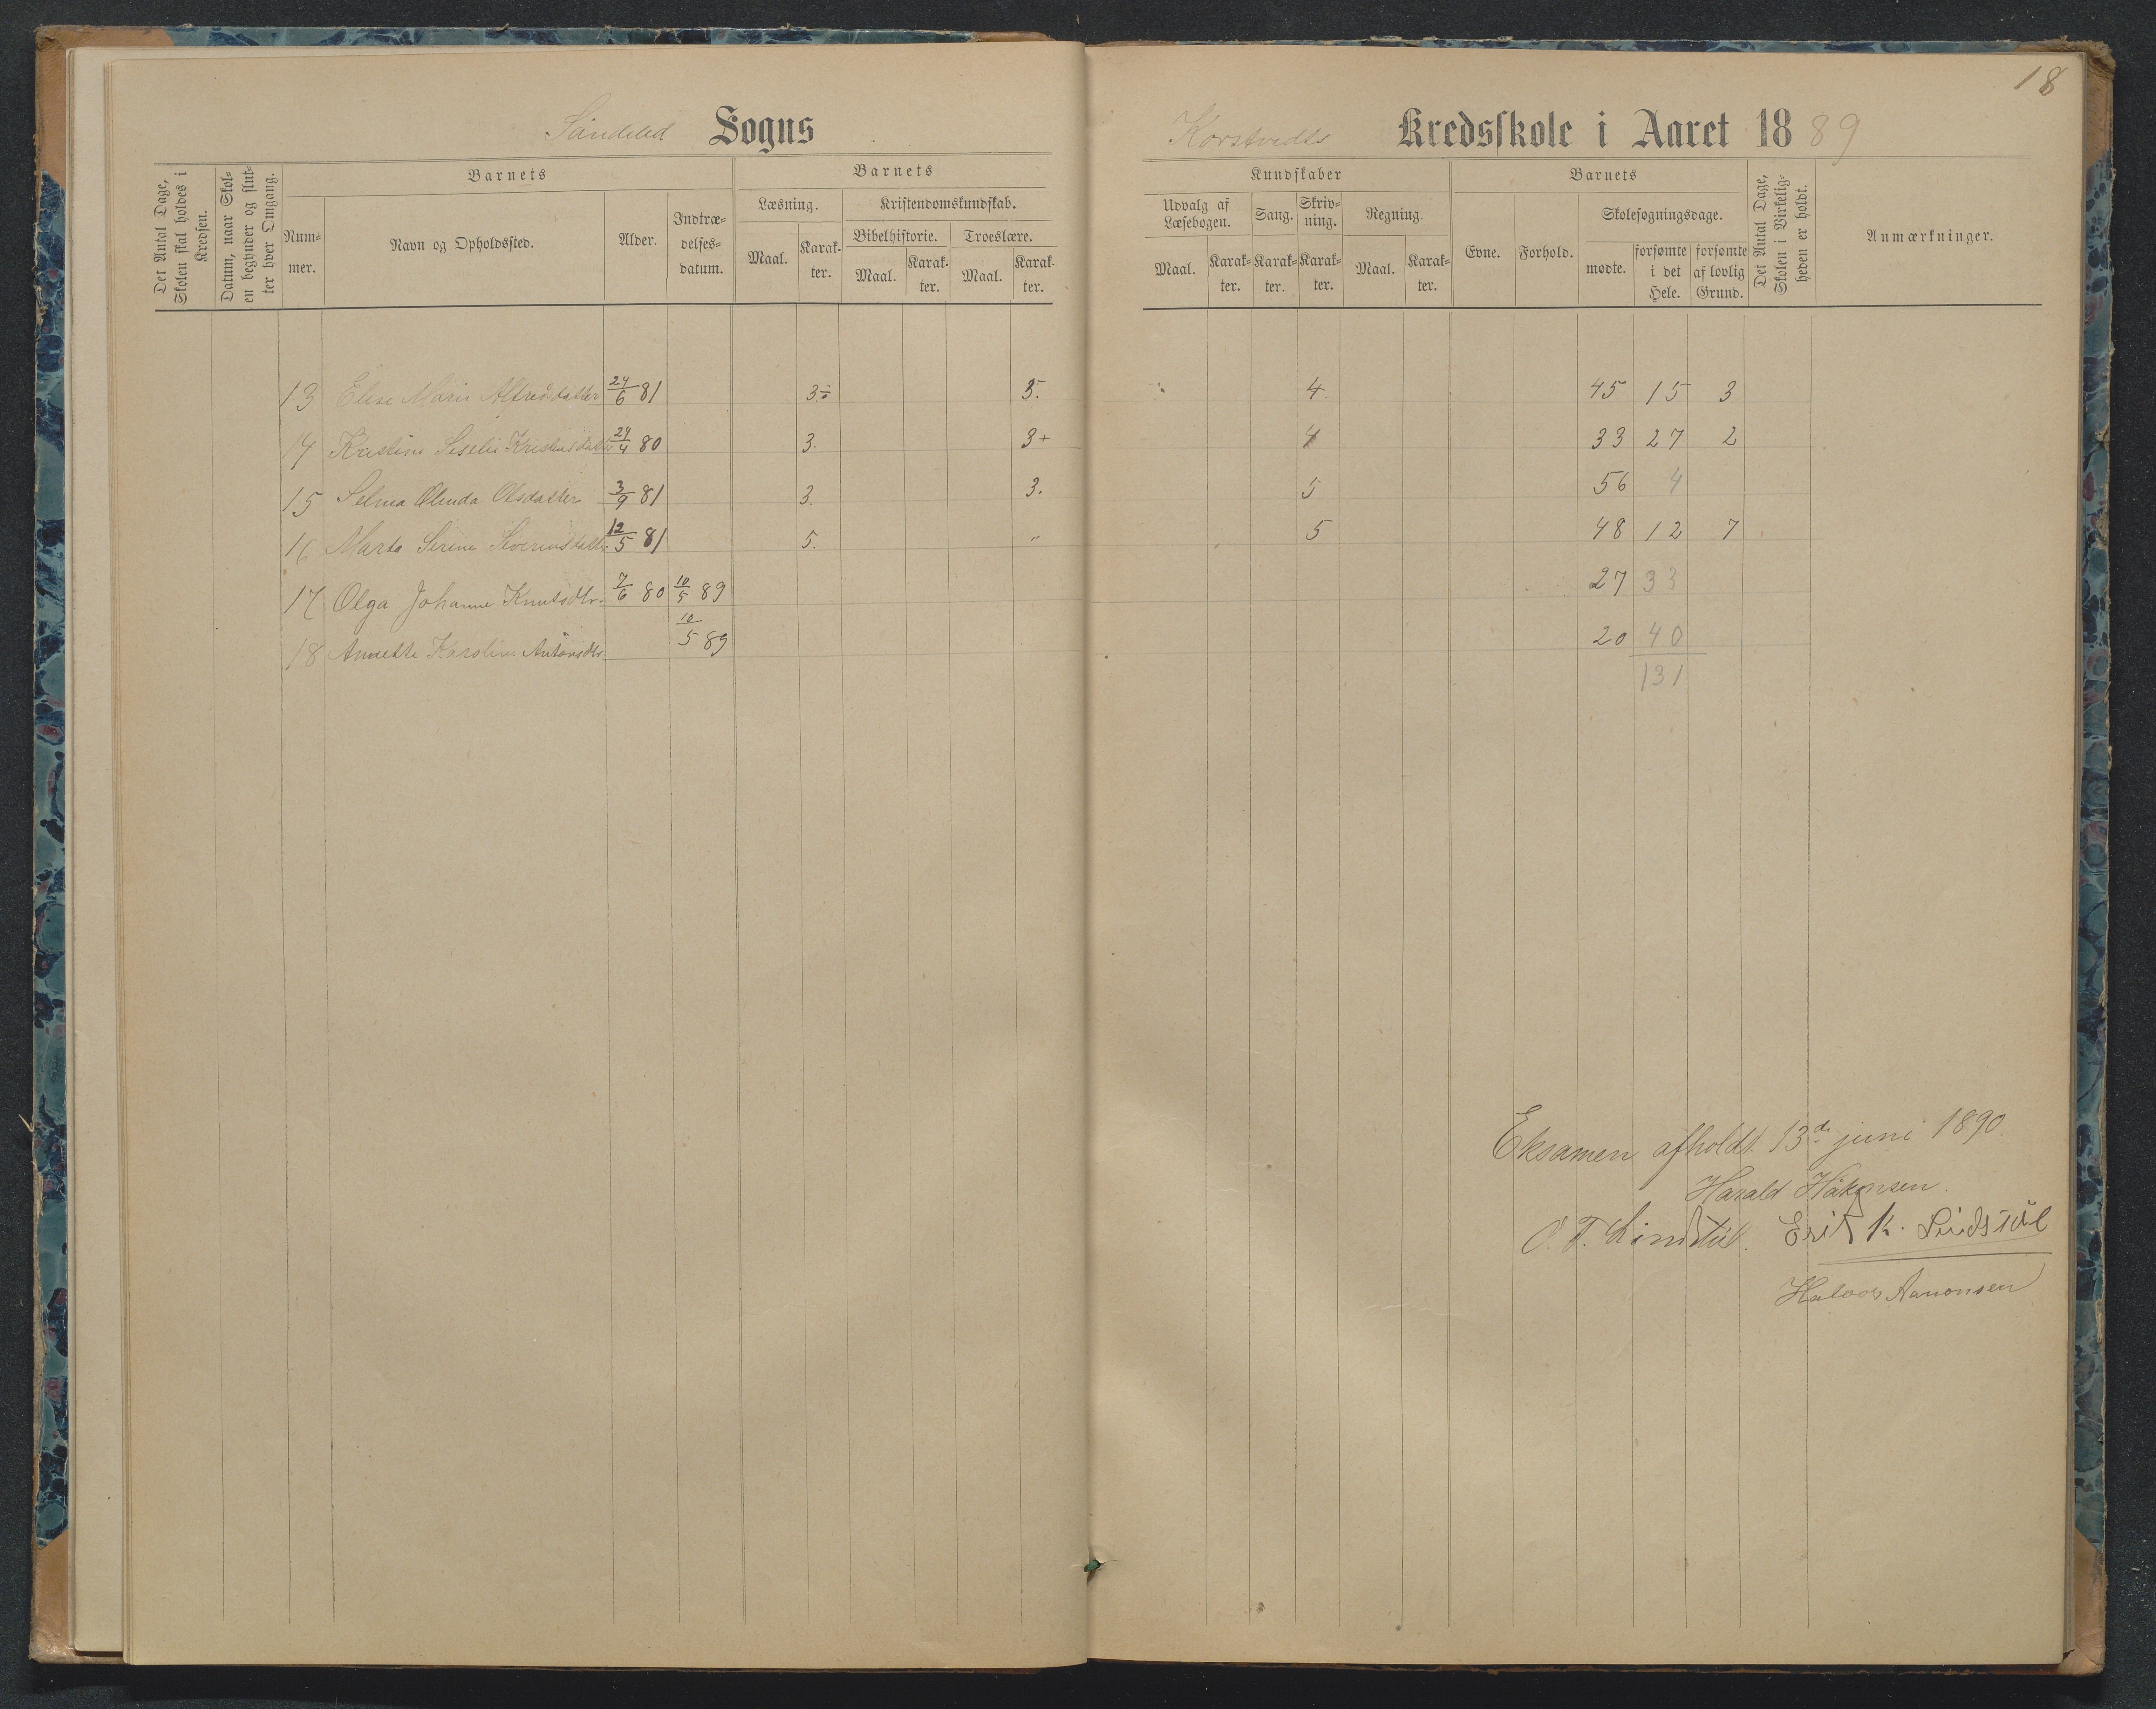 18
Söndeled Sogns
Korstvedts Kredsskole i Aaret 1889
Det Antal Dage, Skolen skal holdes i Kredsen.
Datum, naar Skolen begynder og slutter hver Omgang.
Barnets
Nummer.
Navn og Opholdssted.
Alder.
Indtrædelsesdatum.
Barnets
Læsning.
Maal.
Karakter.
Kristendomskundskab.
Bibelhistorie.
Maal.
Karakter.
Troeslære.
Maal.
Karakter.
Kundskaber
Udvalg af Læsebogen.
Maal.
Karakter.
Sang.
Karakter.
Skrivning.
Karakter.
Regning.
Maal.
Karakter.
Barnets
Evne.
Forhold.
Skolesøgningsdage.
mødte.
forsømte i det Hele.
forsømte af lovlig Grund.
Det Antal Dage, Skolen i Virkeligheden er holdt.
Anmærkninger.
13 Elise Marie Alfreddatter 24/6 81 3.- 3. 4 45 15 3
14 Kristine Seselie 24/4 80 3. 3+ 4 33 27 2
15 Selma Olinda Olsdatter 3/9 81 3. 3. 5 56 4
16 Marta Serine Severinsdatter 12/5 81 5. " 5 48 12 7
17 Olga Johanne Knutsdtr. 7/6 80 10/5 89 27 33
18 Annette Karoline Antonsdtr. 10/5 89 20 40
131
Eksamen afholdt 13de juni 1890.
Harald Håkonsen.
O. T. Lindstöl. Erik K. Lindstöl
Halvor Aanonsen